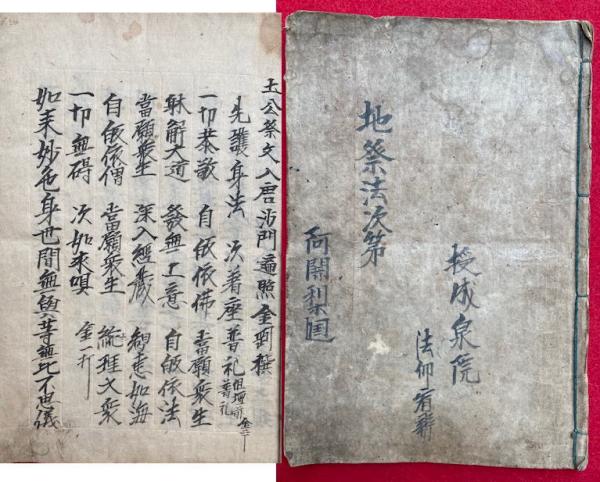 土公祭文入唐沙門遍照金剛撰
先護身法 次著座普礼
一切恭敬 自皈依佛 當願衆生
躰解大道 發無上意 自皈依法
當願衆生 深入經蔵 智恵如海
自皈依僧 當願衆生 統理大衆
一切無碍 次如来唄 金一打
如来妙色身世間無與等無比不思儀
地祭法次第
授成泉院
法印
阿闍梨